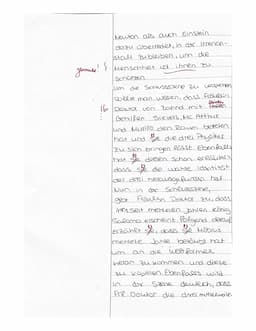 Newton als auch Einstein
dazu überredet, in der Irren-
statt zu bleiben, um die
Menschheit vor ihnen zu
schützen
Um die Schlussszene zu verstehen
sollte man wissen, dass Fräulein
Doktor von Zahnd mit
Gehilfen Sievers, Mc Arthur
und Murillo den Raum betreten
hat und die drei Physiker
zu sich bringen lässt. Ebenfalls
hat sie diesen schon erklärt
dass sie die wahre Identität
der drei herausgefunden hat
Nun in der Schlussszene,
gibt Fräulein Doktor zu, dass
ihr seit mehreren Jahren König
Salomo erscheint. Folgend darauf
erzählt sie, dass sie Möbius
mehrere Jahre betäubt hat
um an die Weltformel
heran zu kommen und diese
zu kopieren. Ebenfalls wird
in der Szene deutlich, dass
Frl. Doktor die drei mittlerweile